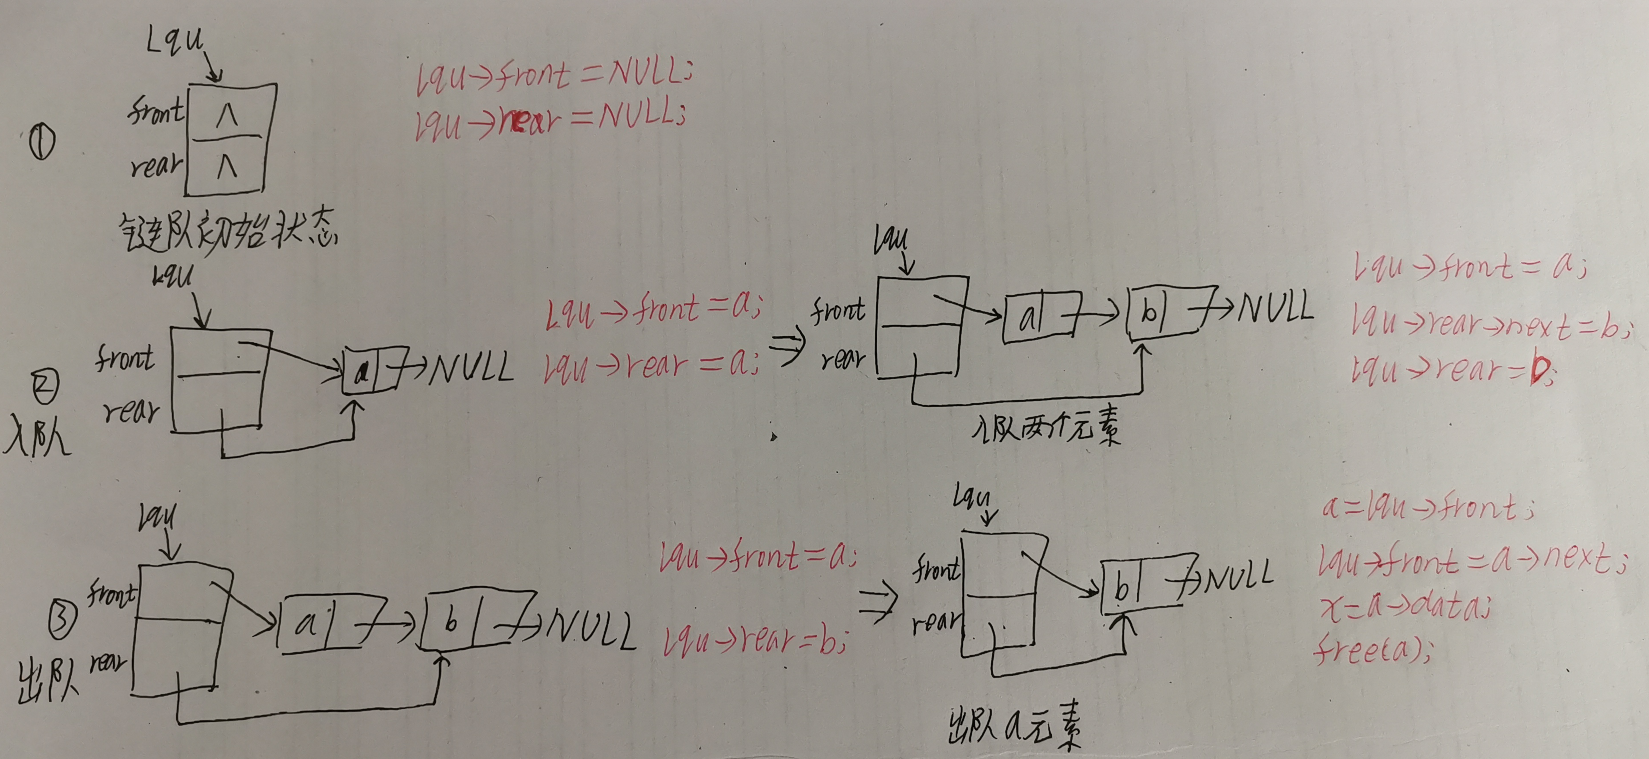 ①
Lqu
front ∧
rear ∧
lqu→front=NULL;
lqu→rear=NULL;
链队初始状态
②
入队
Lqu
front
rear
a →NULL
Lqu→front=a;
lqu→rear=a;
⇒
lqu
front
rear
a → b →NULL
入队两个元素
lqu→front=a;
lqu→rear→next=b;
lqu→rear=b;
③
出队
lqu
front
rear
a → b →NULL
lqu→front=a;
lqu→rear=b;
⇒
Lqu
front
rear
b →NULL
出队a元素
a=lqu→front;
lqu→front=a→next;
x=a→data;
free(a);